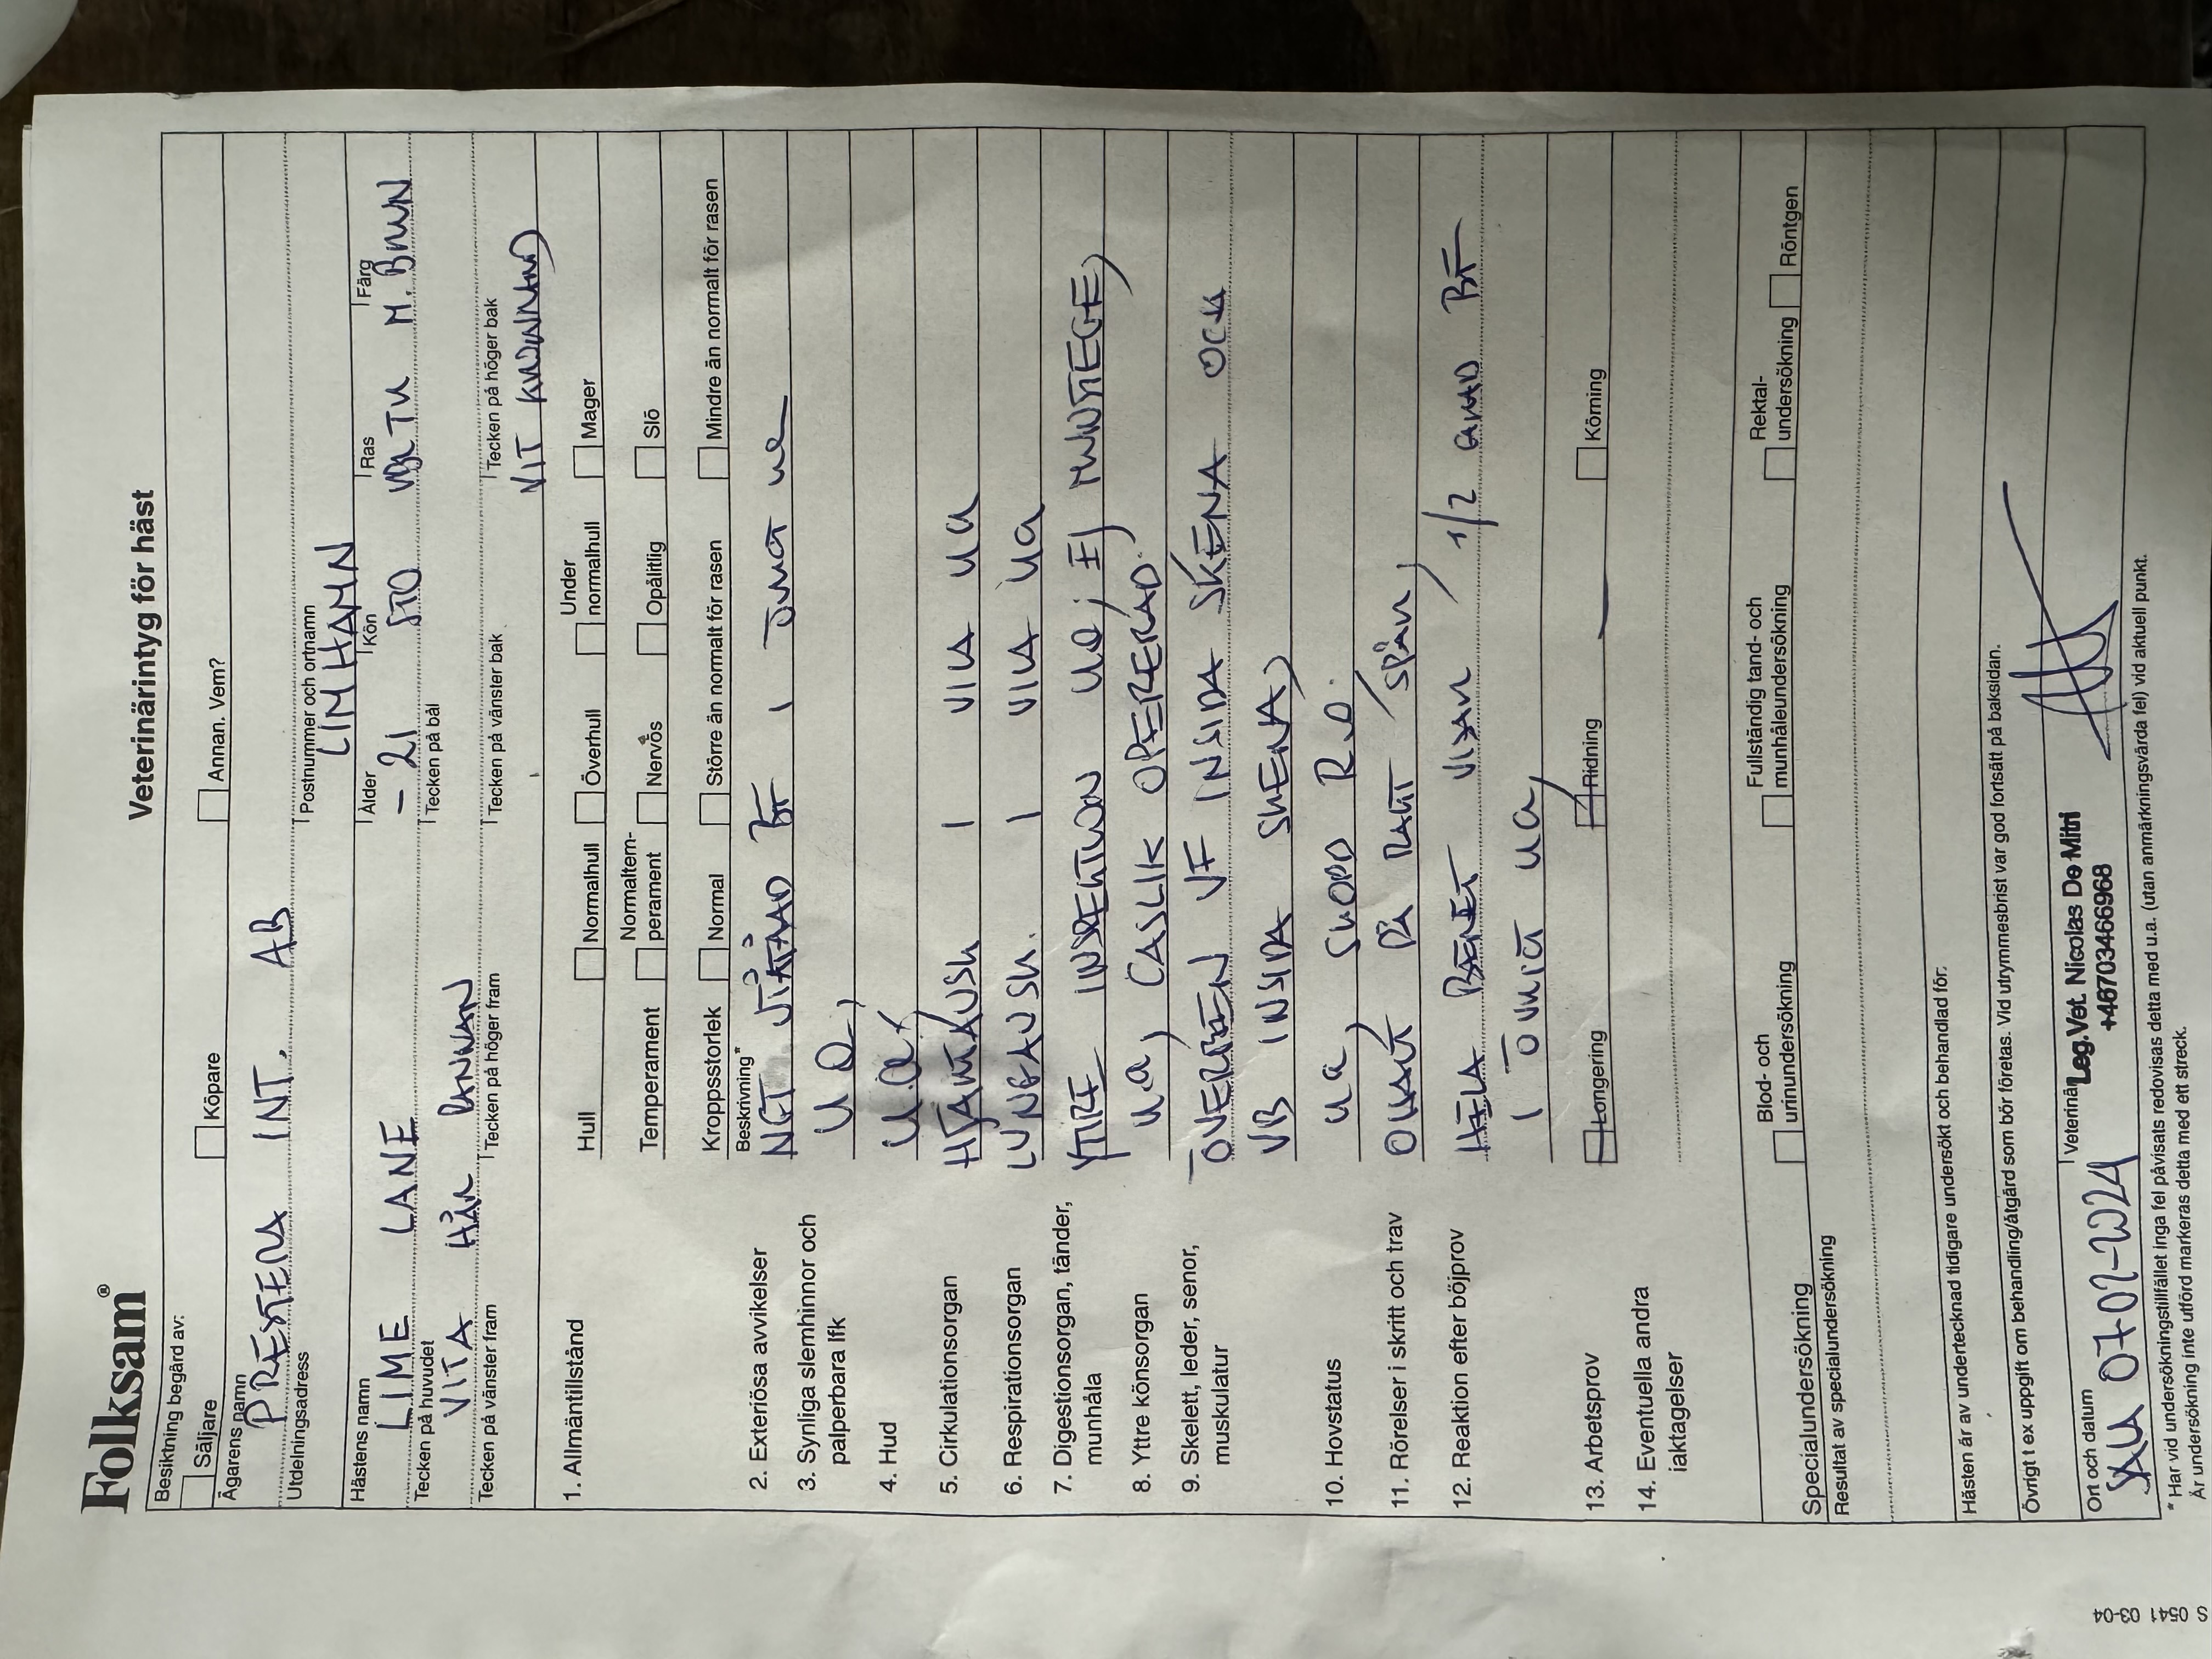 Folksam®
Veterinärintyg för häst
Besiktning begärd av:
Säljare Köpare Annan. Vem?
Ägarens namn
PRESTENA INT. AB
Utdelningsadress Postnummer och ortnamn
LIMHAMN
Hästens namn Ålder Kön Ras Färg
LIME LANE -21 STO M. BRUN
Tecken på huvudet Tecken på bål
VITA HÅR PANNAN
Tecken på vänster fram Tecken på höger fram Tecken på vänster bak Tecken på höger bak
VIT
1. Allmäntillstånd Hull Normalhull Överhull Under normalhull Mager
Temperament Normaltem-perament Nervös Opålitlig Slö
Kroppsstorlek Normal Större än normalt för rasen Mindre än normalt för rasen
Beskrivning*
2. Exteriösa avvikelser NGT BF I ÖVRIGT ua
3. Synliga slemhinnor och
palperbara lfk u a
4. Hud u.a
5. Cirkulationsorgan HJÄRTAUSK I VILA ua
6. Respirationsorgan LUNGAUSK. I VILA ua
7. Digestionsorgan, tänder,
munhåla YTTRE INSPEKTION ua; EJ MUNSTEGE)
8. Yttre könsorgan u.a, CASLIK OPERERAD.
9. Skelett, leder, senor,
muskulatur ÖVERBEN VF INSIDA SKENA OCH
VB INSIDA SKENA)
10. Hovstatus ua, SKODD R.O.
11. Rörelser i skritt och trav PÅ RAKT SPÅR,
12. Reaktion efter böjprov HELA BENET VISAR 1/2 GRAD BF
I ÖVRIGT ua,
13. Arbetsprov Longering Ridning Körning
14. Eventuella andra
iaktagelser
Specialundersökning Blod- och urinundersökning Fullständig tand- och munhåleundersökning Rektal-undersökning Röntgen
Resultat av specialundersökning
Hästen är av undertecknad tidigare undersökt och behandlad för:
Övrigt t ex uppgift om behandling/åtgärd som bör företas. Vid utrymmesbrist var god fortsätt på baksidan.
Ort och datum Veterinär
Leg.Vet. Nicolas De Mitri
+46703466968
* Har vid undersökningstillfället inga fel påvisats redovisas detta med u.a. (utan anmärkningsvärda fel) vid aktuell punkt.
Är undersökning inte utförd markeras detta med ett streck.
S 0541 03-04